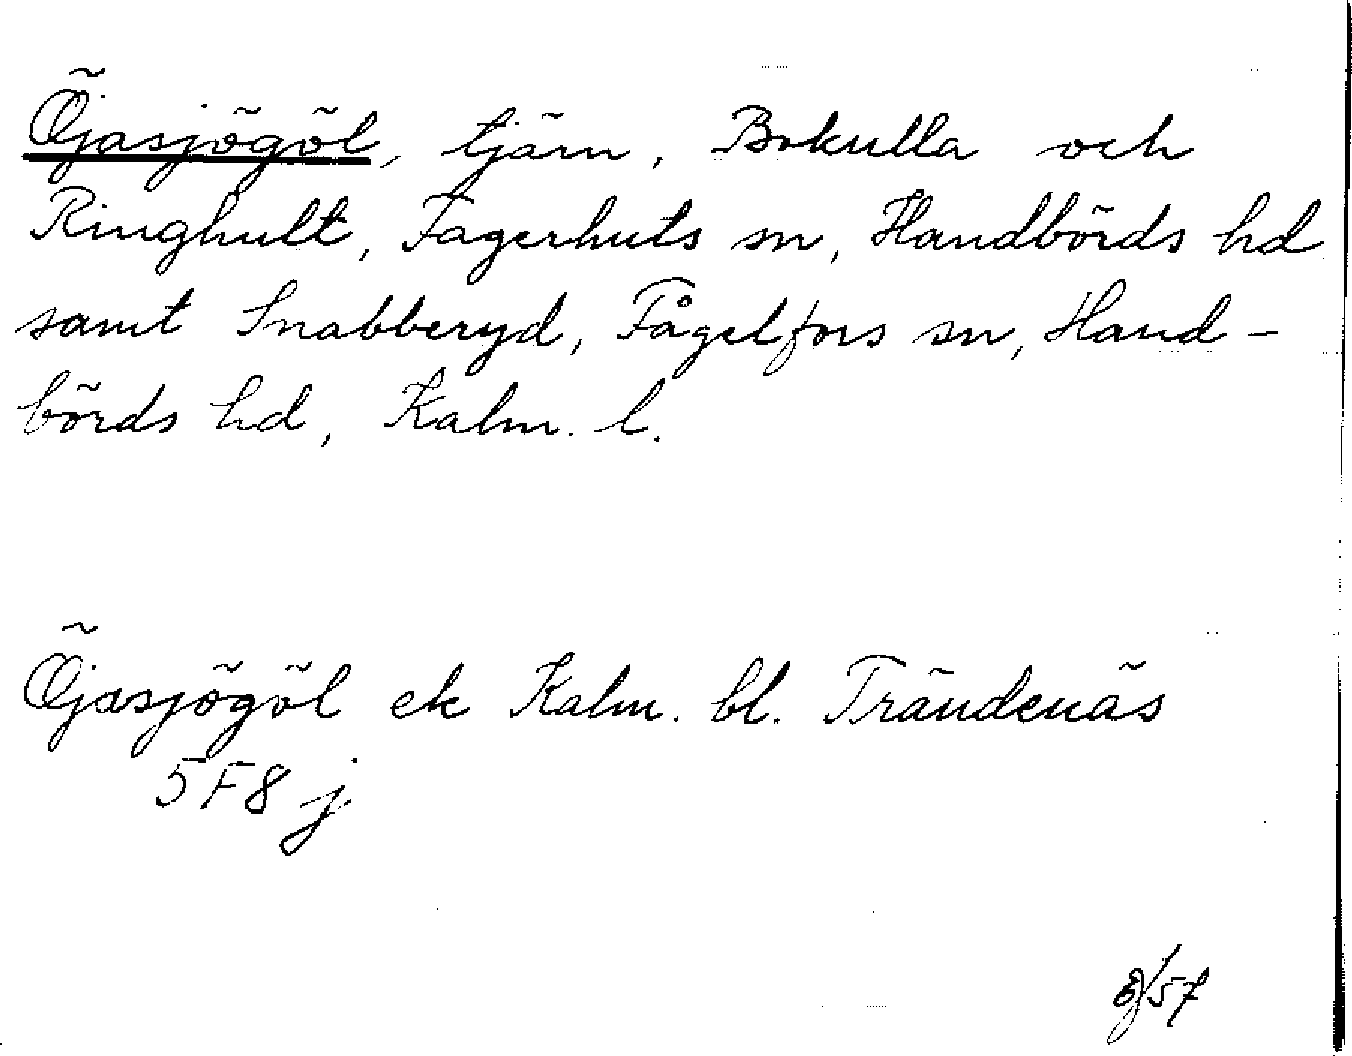 Öjasjögöl, tjärn, Bokulla och
Ringhult, Fagerhults sn, Handbörds hd
samt Snabberyd, Fågelfors sn, Hand-
börds hd, Kalm. l.
Öjasjögöl ek Kalm. bl. Trändenäs
5F8j
/57